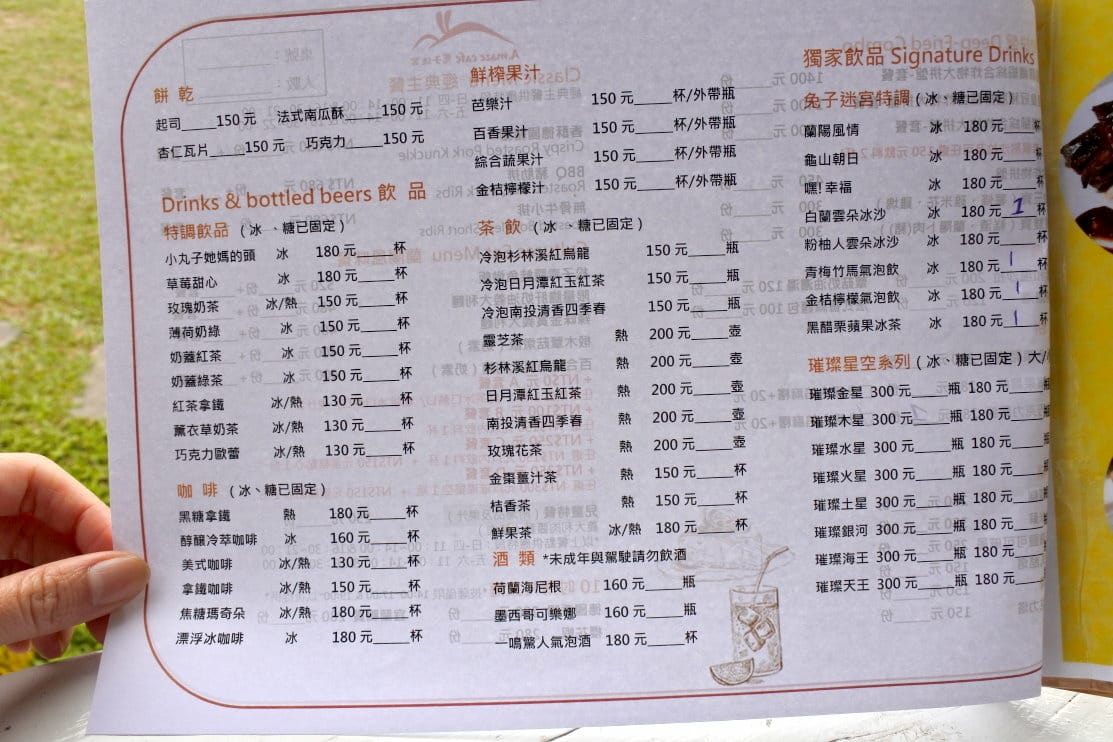 餅 乾
起司_____150 元 法式南瓜酥_____150 元
杏仁瓦片_____150 元 巧克力_____150 元
Drinks & bottled beers 飲 品
特調飲品 (冰 、糖已固定)
小丸子她媽的頭 冰 180 元_____杯
草莓甜心 冰 180 元_____杯
玫瑰奶茶 冰/熱 150 元_____杯
薄荷奶綠 冰 150 元_____杯
奶蓋紅茶 冰 150 元_____杯
奶蓋綠茶 冰 150 元_____杯
紅茶拿鐵 冰/熱 130 元_____杯
薰衣草奶茶 冰/熱 130 元_____杯
巧克力歐蕾 冰/熱 130 元_____杯
咖 啡 (冰、糖已固定)
黑糖拿鐵 熱 180 元_____杯
醇釀冷萃咖啡 冰 160 元_____杯
美式咖啡 冰/熱 130 元_____杯
拿鐵咖啡 冰/熱 150 元_____杯
焦糖瑪奇朵 冰/熱 180 元_____杯
漂浮冰咖啡 冰 180 元_____杯
鮮榨果汁
芭樂汁 150 元_____杯/外帶瓶
百香果汁 150 元_____杯/外帶瓶
綜合蔬果汁 150 元_____杯/外帶瓶
金桔檸檬汁 150 元_____杯/外帶瓶
茶 飲 (冰、糖已固定)
冷泡杉林溪紅烏龍 150 元_____瓶
冷泡日月潭紅玉紅茶 150 元_____瓶
冷泡南投清香四季春 150 元_____瓶
靈芝茶 熱 200 元_____壺
杉林溪紅烏龍 熱 200 元_____壺
日月潭紅玉紅茶 熱 200 元_____壺
南投清香四季春 熱 200 元_____壺
玫瑰花茶 熱 200 元_____壺
金棗薑汁茶 熱 150 元_____杯
桔香茶 熱 150 元_____杯
鮮果茶 冰/熱 180 元_____杯
酒 類 *未成年與駕駛請勿飲酒
荷蘭海尼根 160 元_____瓶
墨西哥可樂娜 160 元_____瓶
一鳴驚人氣泡酒 180 元_____杯
獨家飲品 Signature Drinks
兔子迷宮特調 (冰、糖已固定)
蘭陽風情 冰 180 元_____杯
龜山朝日 冰 180 元_____杯
嘿! 幸福 冰 180 元_____杯
白蘭雲朵冰沙 冰 180 元__1__杯
粉柚人雲朵冰沙 冰 180 元_____杯
青梅竹馬氣泡飲 冰 180 元__1__杯
金桔檸檬氣泡飲 冰 180 元__1__杯
黑醋栗蘋果冰茶 冰 180 元__1__杯
璀璨星空系列 (冰、糖已固定) 大/
璀璨金星 300 元_____瓶 180 元_____
璀璨木星 300 元_____瓶 180 元_____
璀璨水星 300 元_____瓶 180 元_____
璀璨火星 300 元_____瓶 180 元_____
璀璨土星 300 元_____瓶 180 元_____
璀璨銀河 300 元_____瓶 180 元_____
璀璨海王 300 元_____瓶 180 元_____
璀璨天王 300 元_____瓶 180 元_____